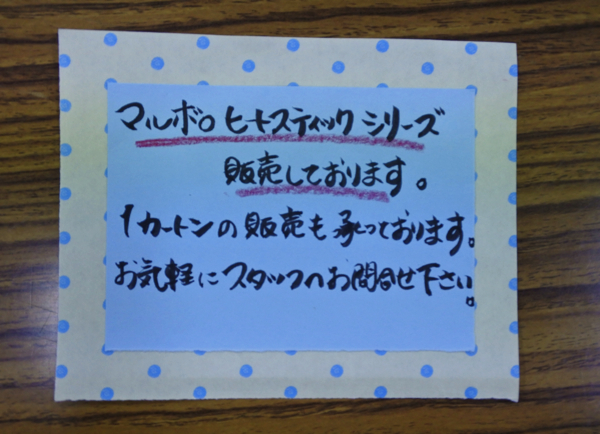 マルボロ ヒートスティック シリーズ
販売しております。
1カートンの販売も承っております。
お気軽にスタッフへお問合せ下さい。